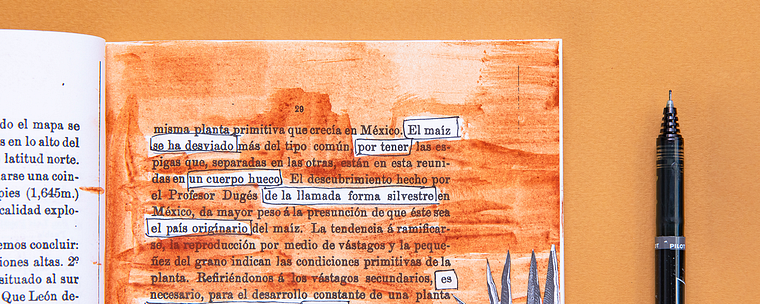 do el mapa se
s en lo alto del
latitud norte.
arse una coin-
pies (1,645m.)
calidad explo-
emos concluir:
iones altas. 2º
situado al sur
Que León de-
29
misma planta primitiva que crecía en México. El maíz
se ha desviado más del tipo común por tener las es-
pigas que, separadas en las otras, están en esta reuni-
das en un cuerpo hueco. El descubrimiento hecho por
el Profesor Dugés de la llamada forma silvestre en
México, da mayor peso á la presunción de que éste sea
el país originario del maíz. La tendencia á ramificar-
se, la reproducción por medio de vástagos y la peque-
ñez del grano indican las condiciones primitivas de la
planta. Refiriéndonos á los vástagos secundarios, es
necesario, para el desarrollo constante de una planta
PILOT